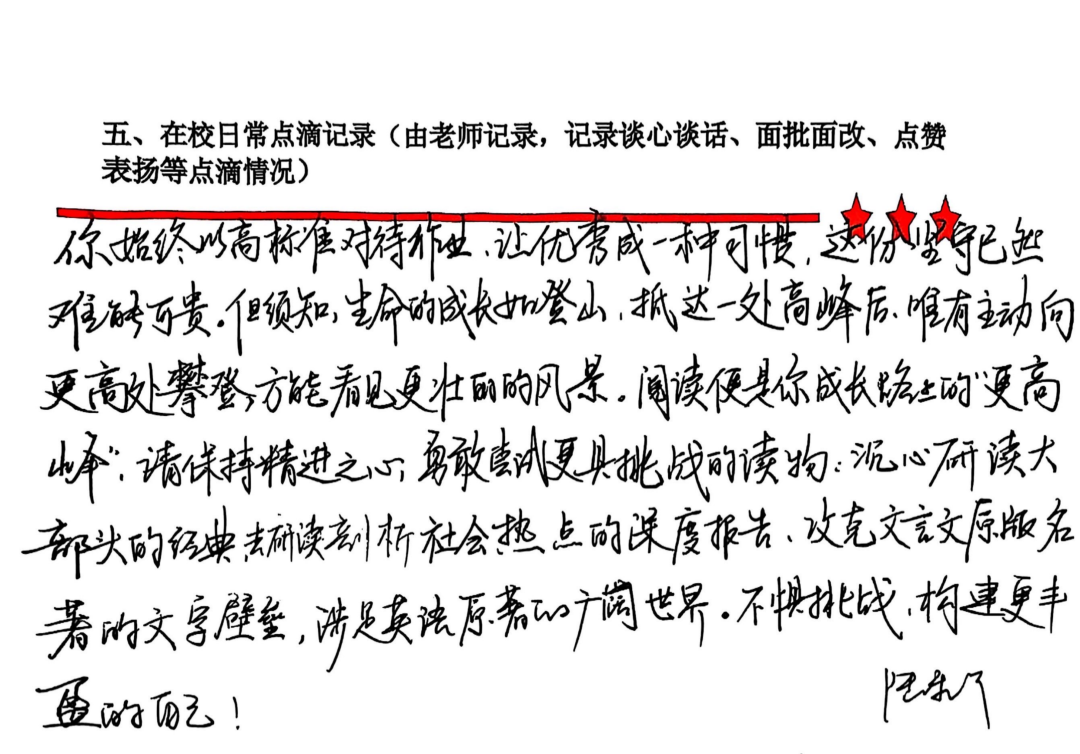 五、在校日常点滴记录（由老师记录，记录谈心谈话、面批面改、点赞
表扬等点滴情况）
你始终以高标准对待作业，让优秀成一种习惯，这份坚守已然
难能可贵。但须知，生命的成长如登山，抵达一处高峰后，唯有主动向
更高处攀登，方能看见更壮丽的风景。阅读便是你成长路上的“更高
峰”，请保持精进之心，勇敢尝试更具挑战的读物：沉心研读大
部头的经典，去研读剖析社会热点的深度报告、攻克文言文原版名
著的文字壁垒，涉足英语原著的广阔世界。不惧挑战，构建更丰
盈的自己！